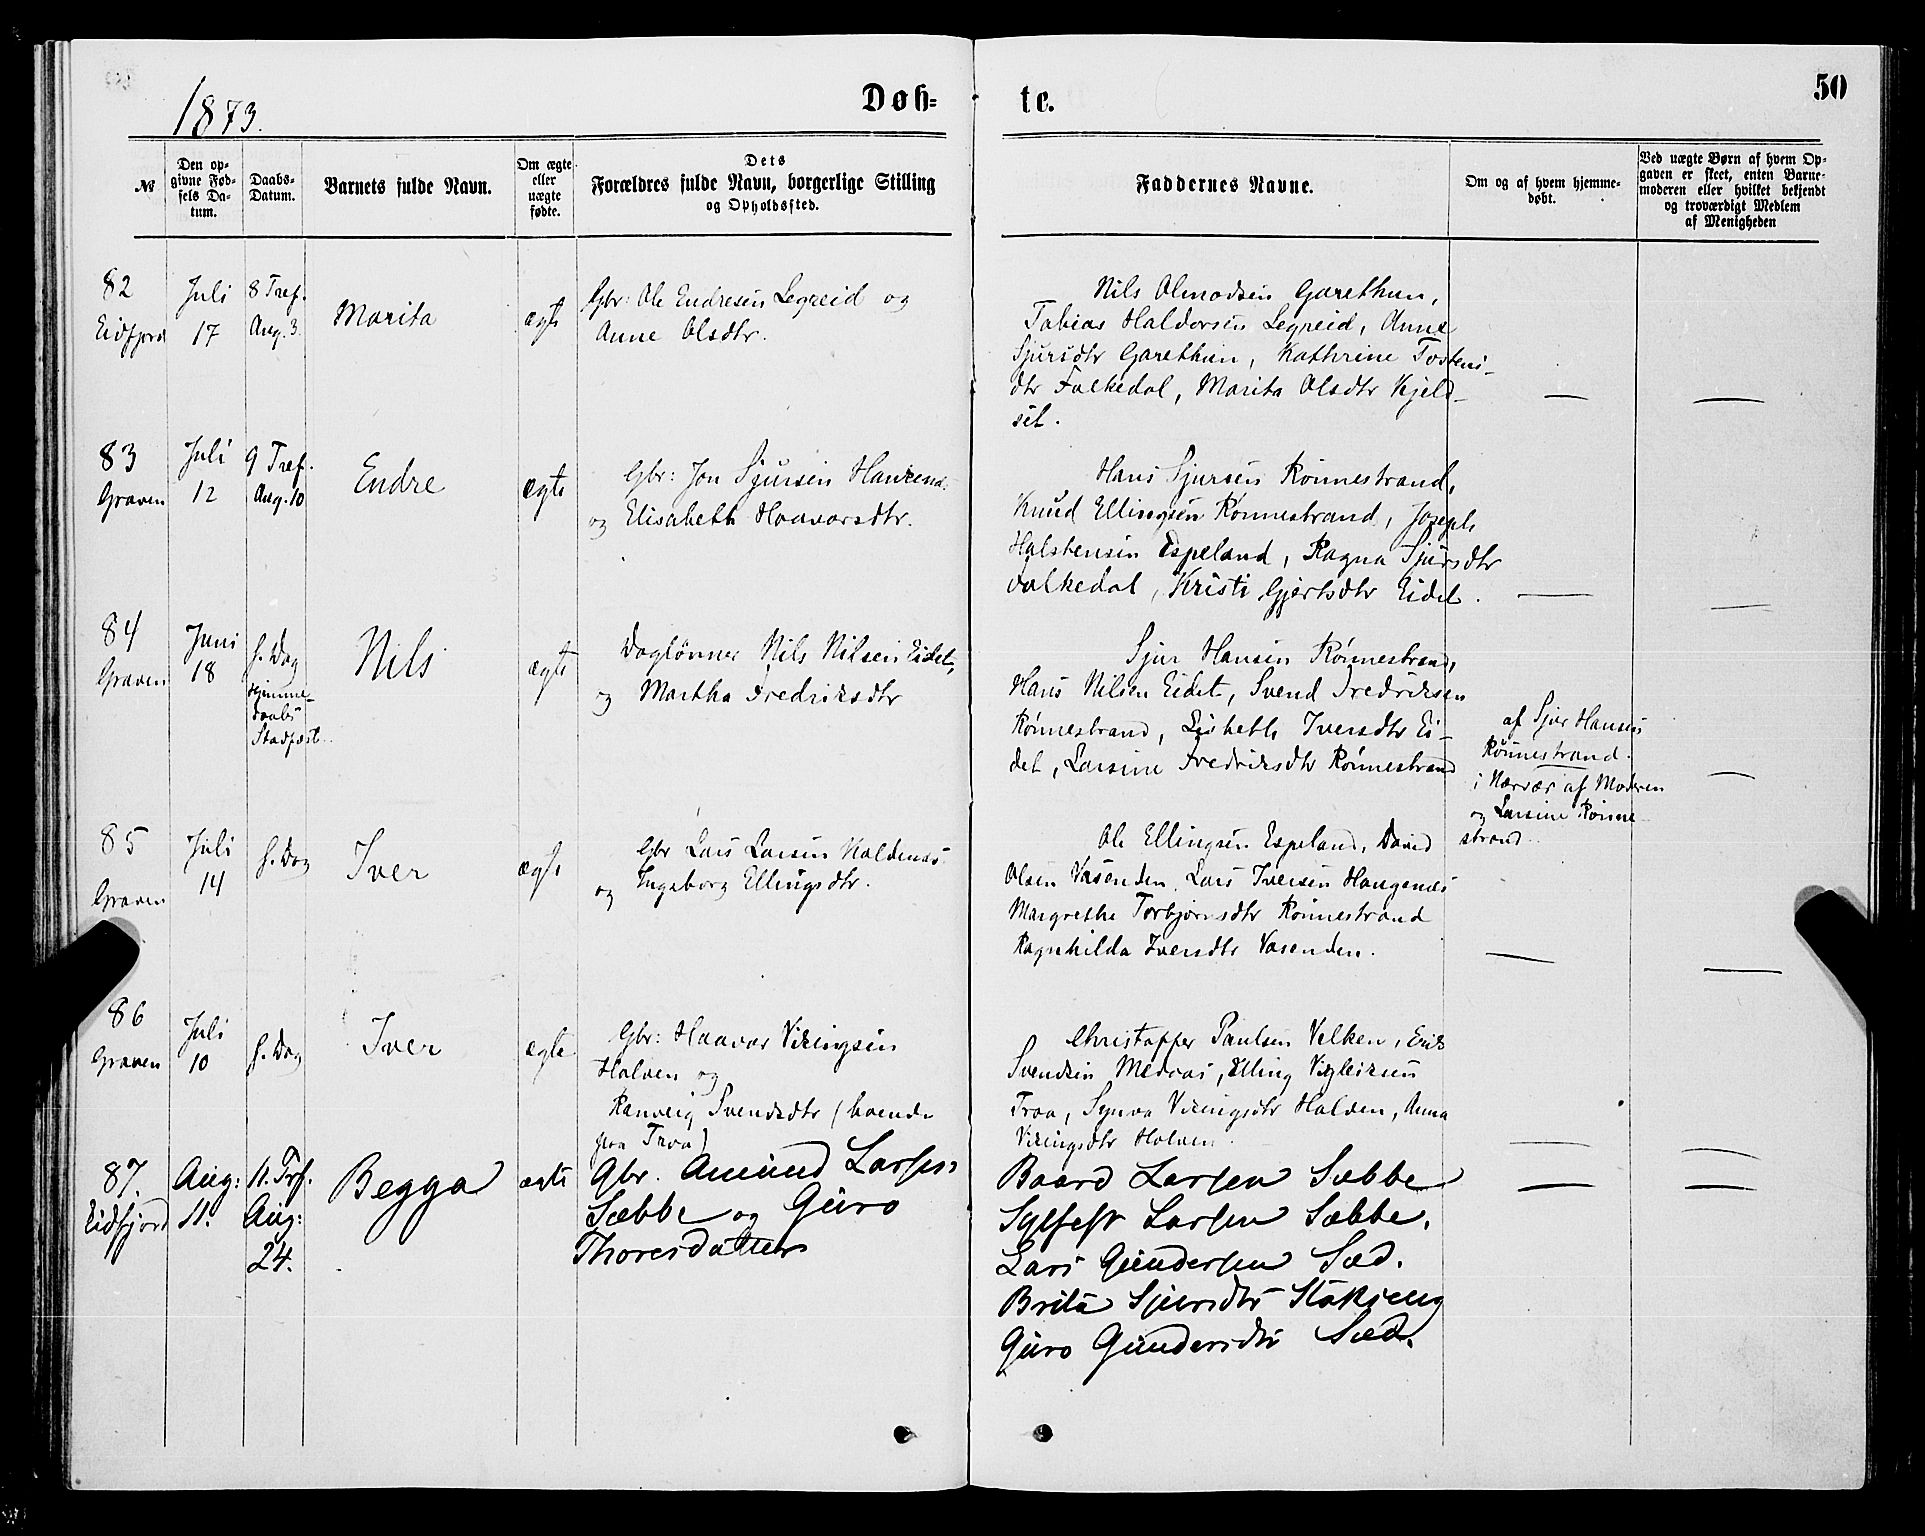 1873.
Døb=
te.
50
№
Den op=
givne Fød=
sels Da=
tum.
Daabs=
Datum.
Barnets fulde Navn.
Om ægte
eller
uægte
fødte.
Dets
Forældres fulde Navn, borgerlige Stilling
og Opholdssted.
Faddernes Navne.
Om og af hvem hjemme=
døbt.
Ved uægte Børn af hvem Op=
gaven er skeet, enten Barne=
moderen eller hvilket bekjendt
og troværdigt Medlem
af Menigheden
82
Eidfjord
Juli
17
8 Tref.
Aug. 3.
Marita
ægte
Gbr: Ole Endresen Legreid og
Anne Olsdtr.
Nils Olmodsen Garethun,
Tobias Haldorsen Legreid, Anne
Sjursdtr Garethun, Kathrine Tostens-
dtr Falkedal, Marita Olsdtr Kjeld-
set.
—
—
83
Graven
Juli
12
9 Tref.
Aug. 10
Endre
ægte
Gbr: Jon Sjursen
og Elisabeth Haavarsdtr.
Hans Sjursen Rønnestrand,
Knud Ellingsen Rønnestrand, Joseph
Halstensen Espeland, Ragna Sjursdtr
Falkedal, Kristi Gjertsdtr Eidet.
—
—
84
Graven
Juni
18
s. Dag
Hjemme-
daabs
Stadfæst.
Nils
ægte
Daglønner Nils Nilsen Eidet,
og Martha Fredriksdtr
Sjur Hansen Rønnestrand,
Hans Nilsen Eidet, Svend Fredriksen
Rønnestrand, Lisbeth Iversdtr Ei-
det, Larsine Fredriksdtr Rønnestrand
af Sjur Hansen
Rønnestrand.
i Nærvær af Moderen
og Larsine Rønne-
strand.
—
85
Graven
Juli
14
s. Dag
Iver
ægte
Gbr Lars Larsen Haldenæs
og Ingeborg Ellingsdtr.
Ole Ellingsen Espeland, David
Olsen Vasenden, Lars Iversen Haugenæs
Margrethe Torbjørnsdtr Rønnestrand
Ragnhilda Iversdtr Vasenden.
—
—
86
Graven
Juli
10
s. Dag
Iver
ægte
Gbr: Haavar Vikingsen
Halven og
Ranveig Svendsdtr (boende
paa Traa)
Christoffer Paulsen Velken, Erik
Svendsen Medaas, Elling Vigleiksen
Traa, Synva Vikingsdtr Halven, Anna
Vikingsdtr Halven.
—
—
87.
Eidfjord
Aug:
11.
11. Trf.
Aug:
24.
Begga
ægte
Gbr. Amund Larsen
Sæbbe og Guro
Thoresdatter
Baard Larsen Sæbbe
Sylfest Larsen Sæbbe.
Lars Gundersen Sæd.
Brita Sjursdtr Støkjeng
Guro Gundersdtr Sæd.
—
—